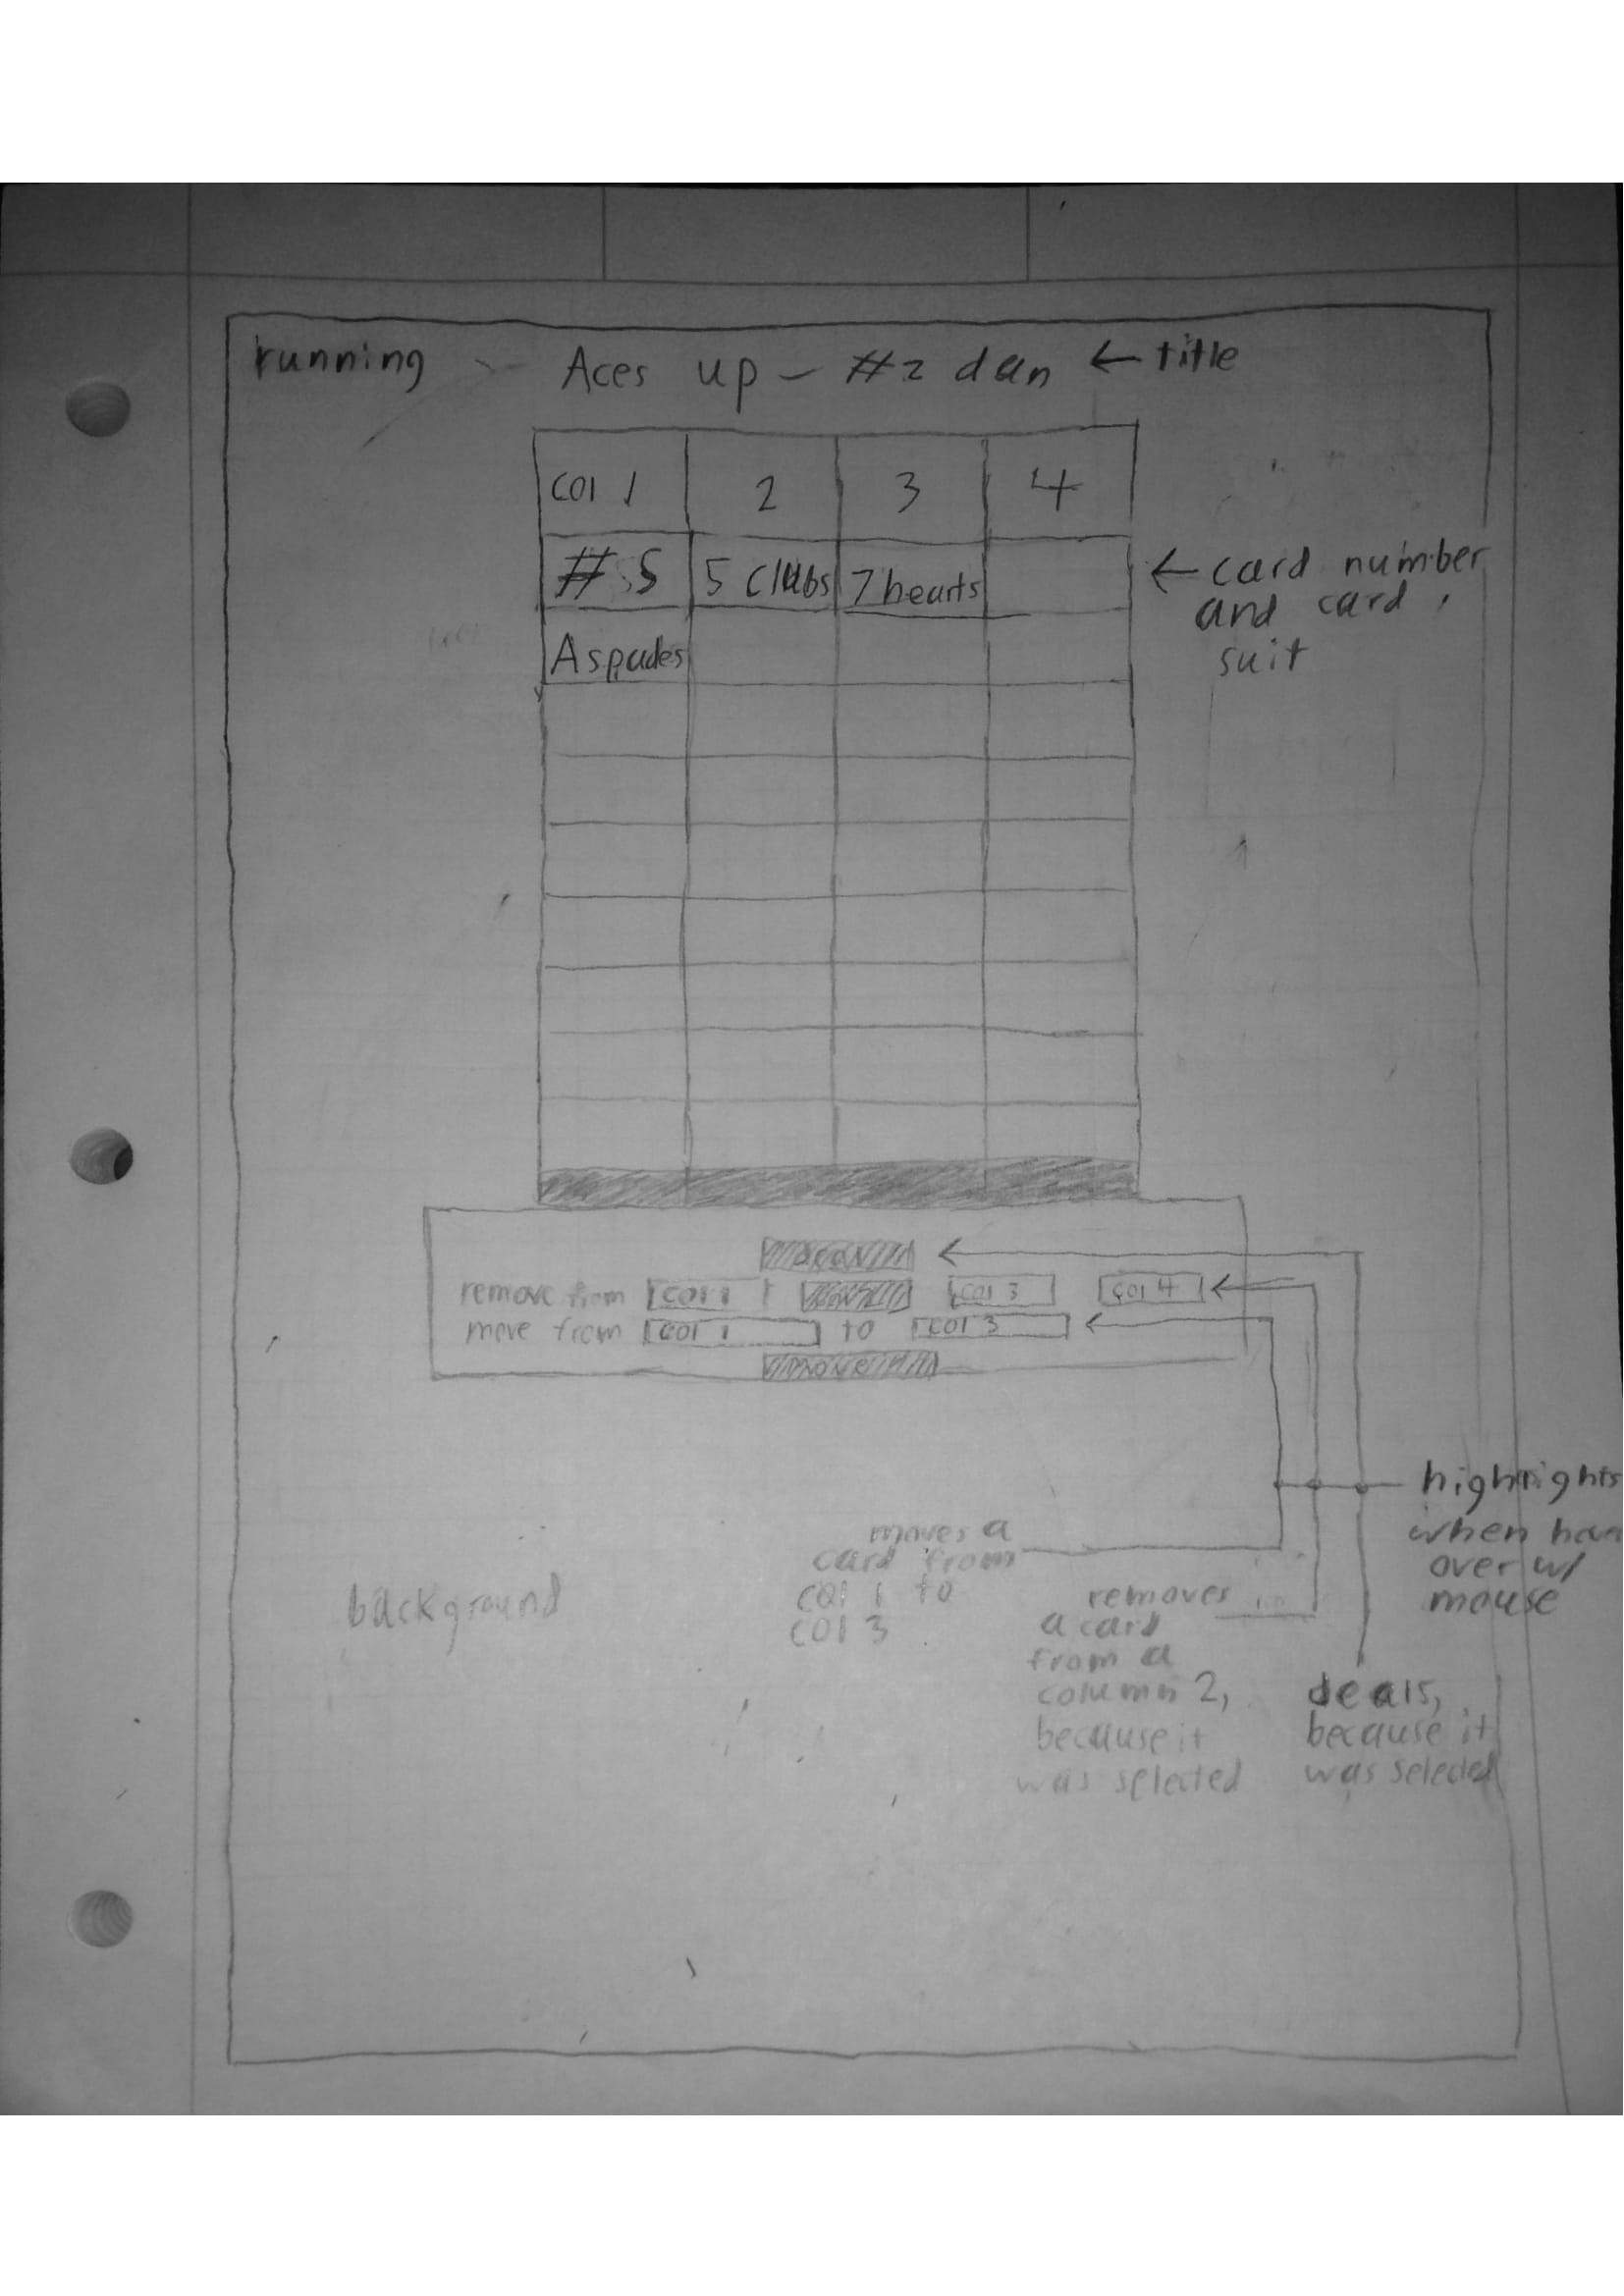 running
Aces up - #2 dan ← title
col 1 2 3 4
# S 5 clubs 7 hearts
← card number
and card
suit
A spades
remove from col 1 col 3 col 4
move from col 1 to col 3
move
highlights
when
over w/
mouse
moves a
card from
col 1 to
col 3
background
removes
a card
from a
column 2,
because it
was selected
deals,
because it
was selected